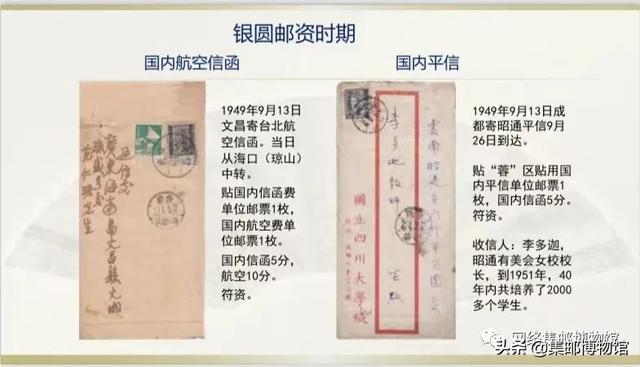 银圆邮资时期
国内航空信函
1949年9月13日
文昌寄台北航
空信函。当日
从海口（琼山）
中转。
贴国内信函费
单位邮票1枚，
国内航空费单
位邮票1枚。
国内信函5分，
航空10分。
符资。
国内平信
國立四川大學緘
1949年9月13日成
都寄昭通平信9月
26日到达。
贴“蓉”区贴用国
内平信单位邮票1
枚，国内信函5分。
符资。
收信人：李多迦，
昭通有美会女校校
长，到1951年，40
年内共培养了2000
多个学生。
网络集邮博物馆
头条@集邮博物馆